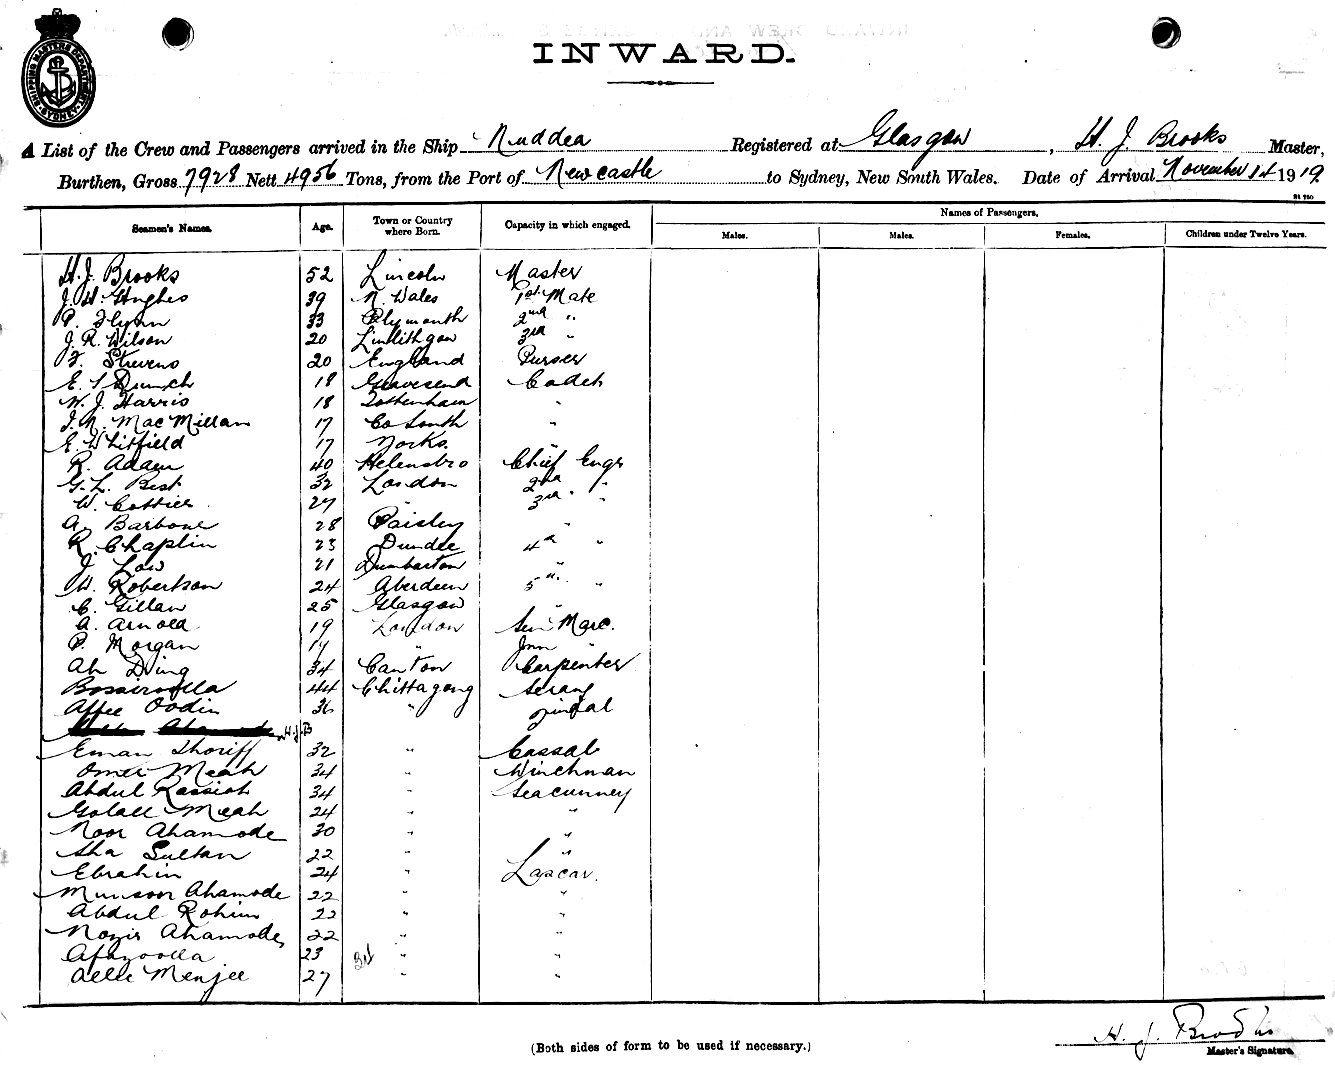 SHIPPING MASTERS DEPARTMENT SYDNEY
INWARD.
A List of the Crew and Passengers arrived in the Ship Nuddea Registered at Glasgow, H. J. Brooks Master,
Burthen, Gross 7928 Nett 4956 Tons, from the Port of Newcastle to Sydney, New South Wales. Date of Arrival November 14 1919.
Seamen's Names. Age. Town or Country where Born. Capacity in which engaged. Names of Passengers.
Males. Males. Females. Children under Twelve Years.
H. J. Brooks 52 Lincoln Master
J. H. Hughes 39 N. Wales 1st Mate
P. Flynn 33 Plymouth 2nd "
J. R. Wilson 20 Linlithgow 3rd "
F. Stevens 20 England Purser
E. Dunch 18 Gravesend Cadet
W. J. Harris 18 Tottenham "
MacMillan 17 Co Louth "
E. Whitfield 17 Yorks. "
R. Adam 40 Helensbro Chief Engr
G. L. Best 32 London 2nd " "
W. Cottier 27 " 3rd " "
A. Barbour 28 Paisley "
R. Chaplin 23 Dundee 4th "
J. Low 21 Dumbarton "
W. Robertson 24 Aberdeen 5th "
C. Gillan 25 Glasgow "
A. Arnold 19 London Sen Marc.
P. Morgan " Jnn "
Ah Ding 34 Canton Carpenter
44 Chittagong Serang
Affee Oodin 36 " Tindal
H.J.B
Eman Shoriff 32 " Cassab
Omer Meah 34 " Winchman
Abdul Rassiob 34 " Seacunney
Golall Meah 24 " "
Noor Ahamode 30 " "
Sha Sultan 22 " "
Ebrahim 24 " Lascar.
Munsoor Ahamode 22 " "
Abdul Rohim 22 " "
Nozir Ahamode 22 " "
Afazoolla 23 " "
Aelle Menjee 27 " "
(Both sides of form to be used if necessary.)
H. J. Brooks
Master's Signature.